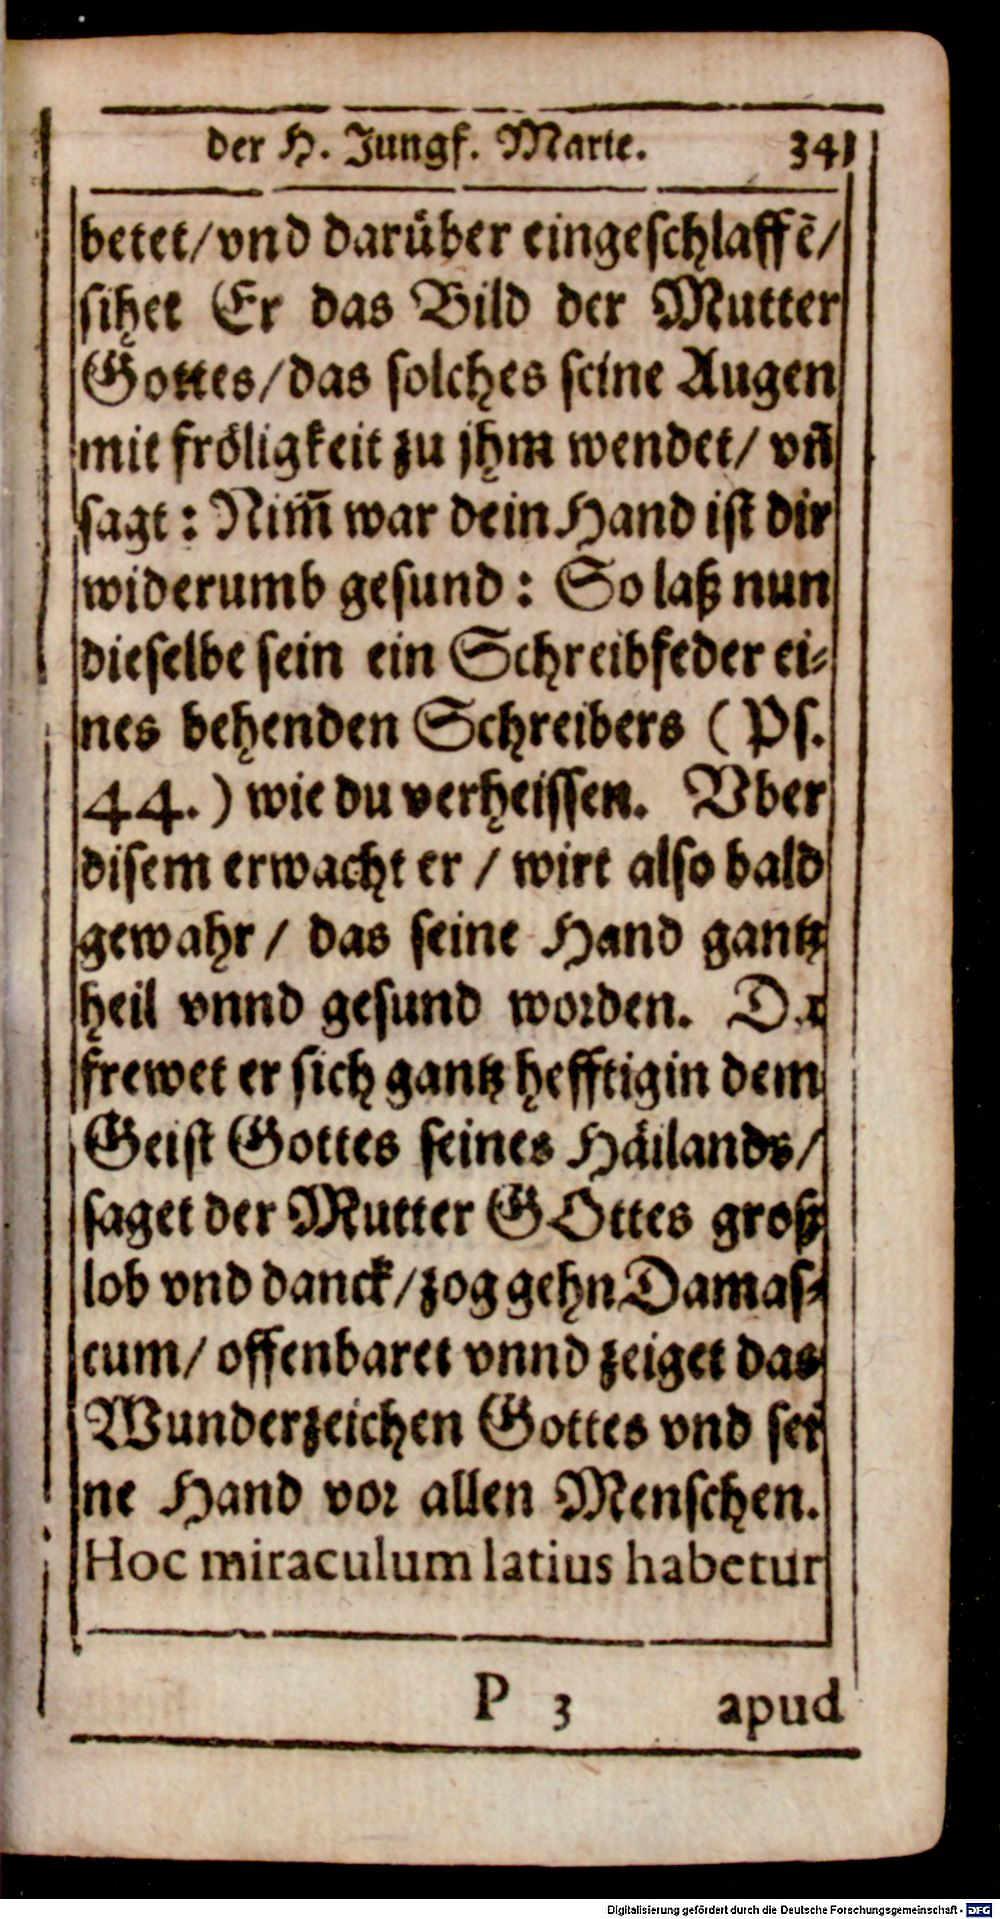 der H. Jungf. Marie. 341
betet/vnd darüber eingeschlaffē/
sihet Er das Bild der Mutter
Gottes/das solches seine Augen
mit fröligkeit zu jhm wendet/ vñ
sagt: Nim̄ war dein Hand ist dir
widerumb gesund: So laß nun
dieselbe sein ein Schreibfeder ei-
nes behenden Schreibers (Ps.
44.) wie du verheissen. Vber
disem erwacht er / wirt also bald
gewahr / das seine Hand gantz
heil vnnd gesund worden. Da
frewet er sich gantz hefftig in dem
Geist Gottes seines Häilands/
saget der Mutter GOttes groß
lob vnd danck/zog gehn Damas-
cum/ offenbaret vnnd zeiget das
Wunderzeichen Gottes vnd sei
ne Hand vor allen Menschen.
Hoc miraculum latius habetur
P 3 apud
Digitalisierung gefördert durch die Deutsche Forschungsgemeinschaft - DFG